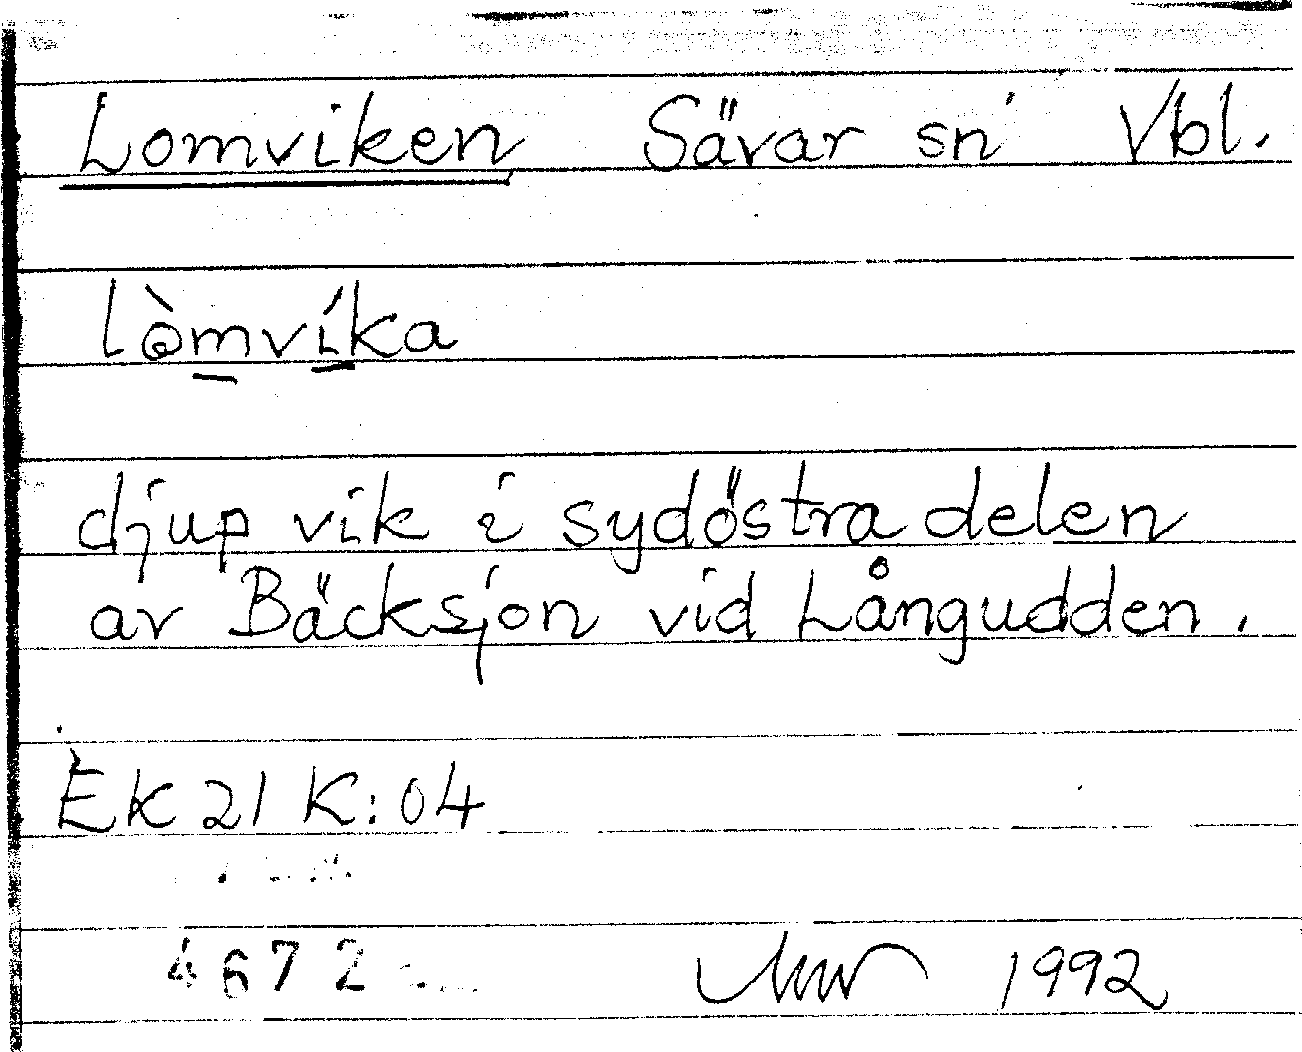 Lomviken Sävar sn Vbl.
lòmvíka
djup vik i sydöstra delen
av Bäcksjön vid Långudden.
EK 21 K:04
4672
1992